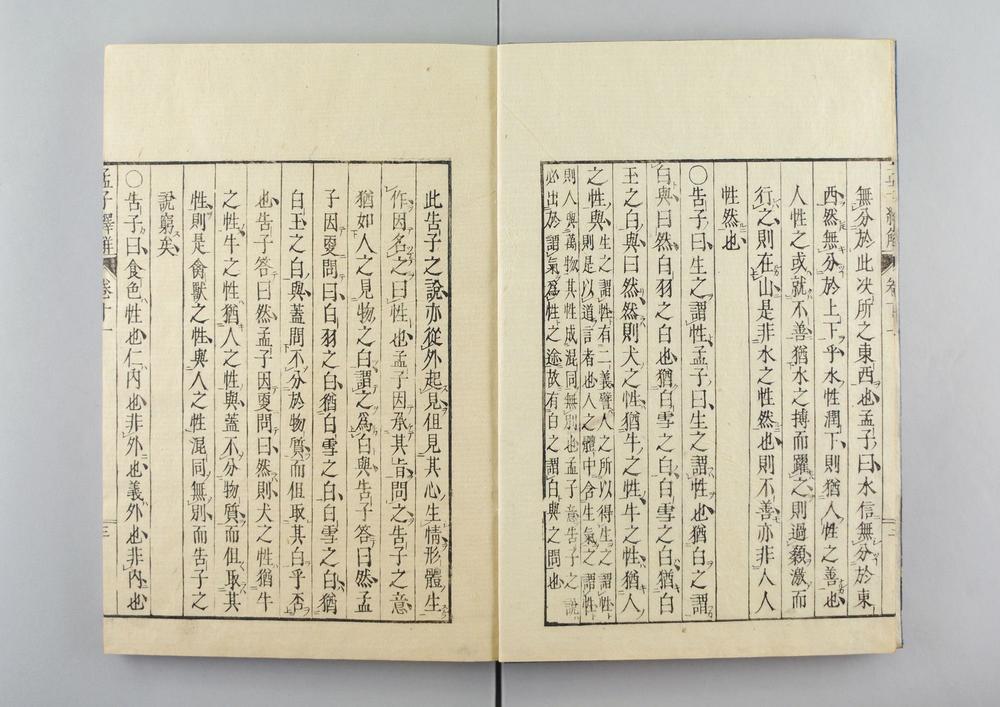 無分於此決所之東西也孟子曰水信無分於東
西然無分於上下乎水性潤下則猶人性之善也
人性之或就不善猶水之搏而躍之則過顙激而
行之則在山是非水之性然也則不善亦非人人
性然也
〇告子曰生之謂性孟子曰生之謂性也猶白之謂
白與曰然白羽之白也猶白雪之白白雪之白猶白
玉之白與曰然然則犬之性猶牛之性牛之性猶人
之性與
生之謂性有二義譬人之所以得生之謂性
則是以道言者也人之體中含生氣之謂性
則人與萬物其性成混同無別也孟子意告子之說
必出於謂氣爲性之途故有白之謂白與之問也
此告子之說亦從外起見但見其心生情形體生
作因名之曰性也孟子因承其旨問之告子之意
猶如人之見物之白謂之爲白與告子答曰然孟
子因更問曰白羽之白猶白雪之白白雪之白猶
白玉之白與蓋問不分於物質而但取其白乎否
也告子答曰然孟子因更問曰然則犬之性猶牛
之性牛之性猶人之性與蓋不分物質而但取其
性則是禽獸之性與人之性混同無別而告子之
說窮矣
〇告子曰食色性也仁內也非外也義外也非內也
孟子繹解 卷十一 三